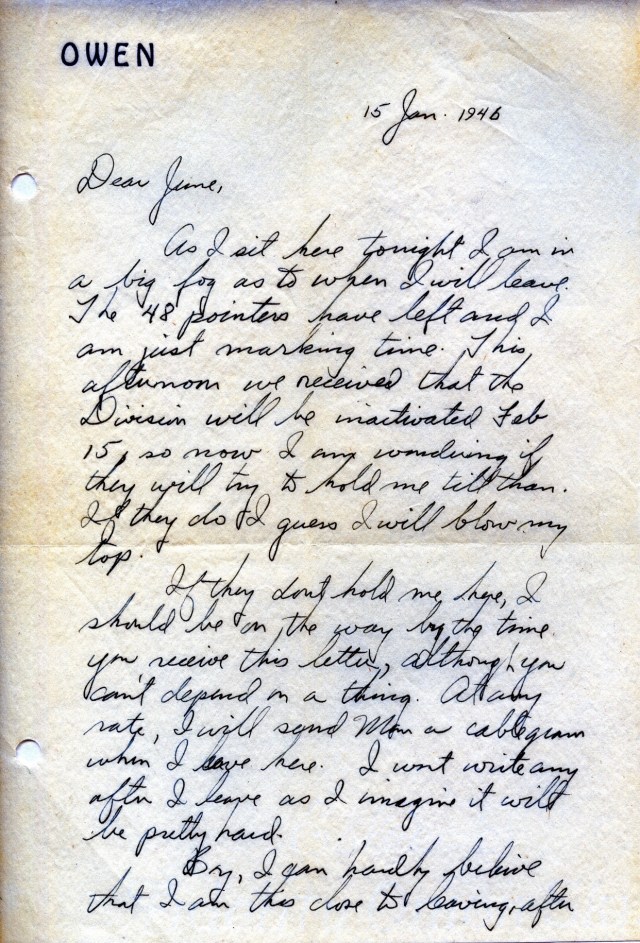 OWEN
15 Jan. 1946
Dear June,
As I sit here tonight I am in
a big fog as to when I will leave.
The 48 pointers have left and I
am just marking time. This
afternoon we received that the
Division will be inactivated Feb
15, so now I am wondering if
they will try to hold me till than.
If they do I guess I will blow my
top.
If they dont hold me here, I
should be on the way by the time
you receive this letter, although you
can't depend on a thing. At any
rate, I will send Mom a cablegram
when I leave here. I wont write any
after I leave as I imagine it will
be pretty hard.
Boy, I can hardly belive
that I am this close to leaving, after